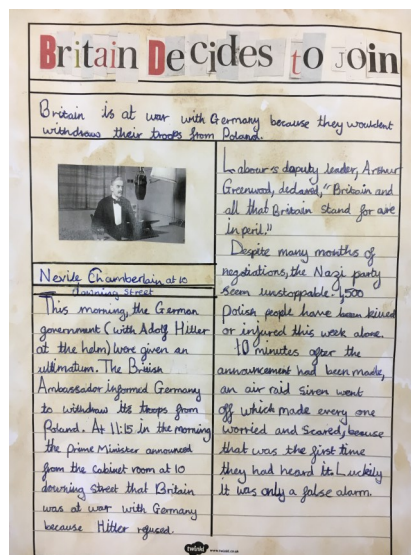 Britain Decides to join
Britain is at war with Germany because they wouldent
withdraw their troops from Poland.
Nevile Chamberlain at 10
downing street
This morning, the German
government (with Adolf Hitler
at the helm) were given an
ultimatum. The British
Ambassador informed Germany
to withdraw its troops from
Poland. At 11:15 in the morning
the prime Minister announced
from the cabinet room at 10
downing street that Britain
was at war with Germany
because Hitler refused.
Labour's deputy leader, Arthur
Greenwood, declared, "Britain and
all that Britain stand for are
in peril."
Despite many months of
negotiations, the Nazi party
seem unstoppable. 1,500
polish people have been killed
or injured this week alone.
10 minutes after the
announcement had been made,
an air raid siren went
off which made every one
worried and scared, because
that was the first time
they had heard it. Luckily
it was only a false alarm.
twinkl www.twinkl.co.uk